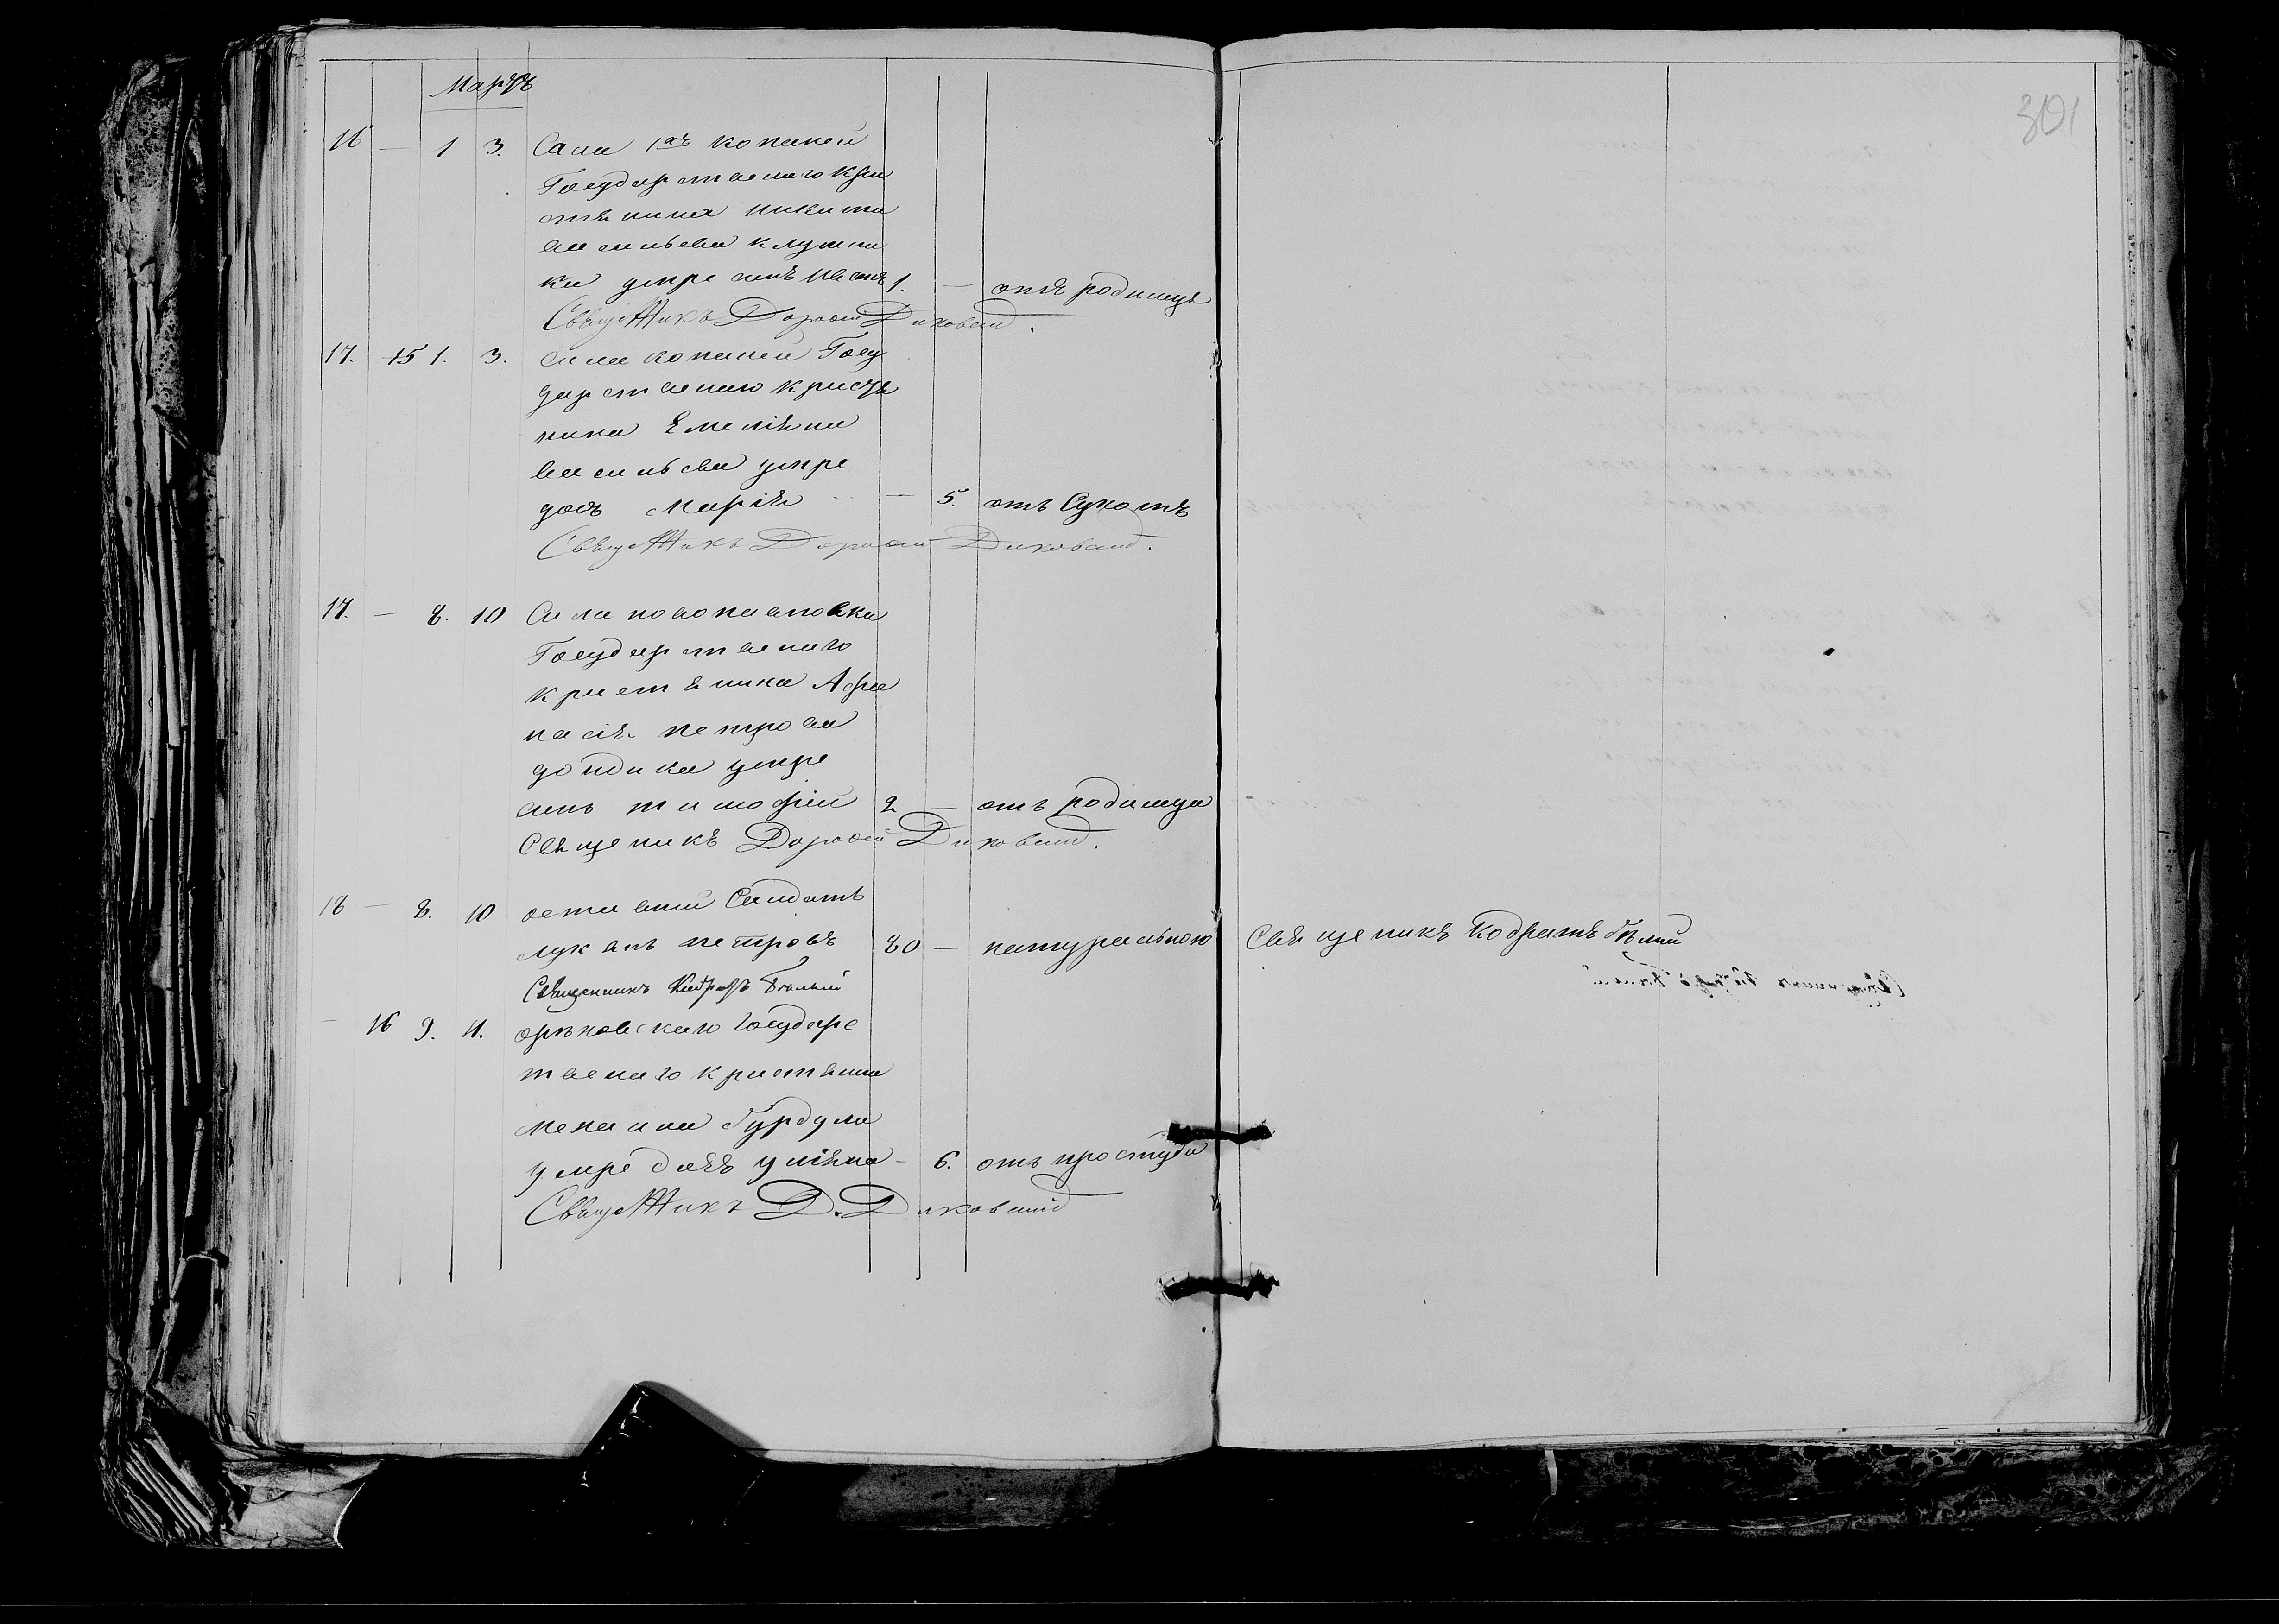 Мартъ
301
16 — 1 3. Села 1хъ копаней
Государственаго крe
стянина никити
василъева клутни
ка умре синъ 1. — отъ родимца
СвѣщеНникъ Дорофей Диковский.
17. 15 1. 3. села копаней Госу
дарственаго кристя
нина Емеляна
василъева умре
доч Марія — 5. отъ Сухотъ
СвѣщеНникъ Дорофей Диковский.
17. — 8. 10 Села новопавловки
Государственаго
кристянина Афа
насія петрова
умре
синъ тимофій 2 — отъ родимца
Свящeникъ Дорофей Диковский.
18 — 8. 10 оставний Салдатъ
лукянъ петровъ 80 — натуральною Свящeникъ Кодратъ бѣлий
Священникъ Кодратъ Бѣлый
— 16 9. 11. орѣховскаго государс
твенаго кристянина
бурдула
умре дочъ уляна — 6. отъ простуди
СвѣщеНникъ Д. Диковский